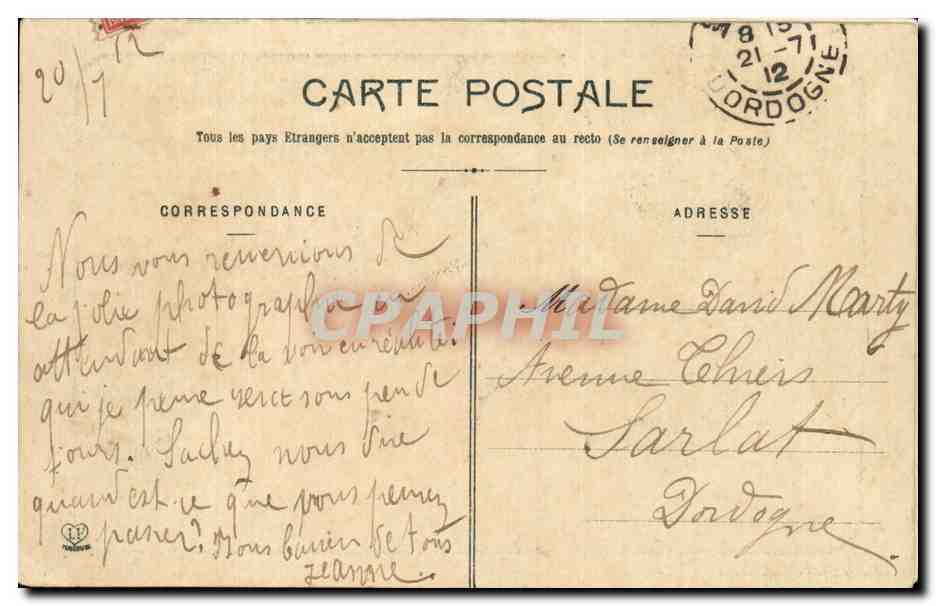 20/7 12
78 15
21 -7
12
DORDOGNE
CARTE POSTALE
Tous les pays Etrangers n'acceptent pas la correspondance au recto (Se renseigner à la Poste)
CORRESPONDANCE
Nous vous remercions de
la jolie photographie en
attendant de la voir en réalité
qui je pense sous peu de
jours. Sachez nous dire
quand est-ce que vous pensez
passer? de tous
Jeanne..
ADRESSE
Madame David Marty
Avenue Thiers
Sarlat
Dordogne
CPAPHIL